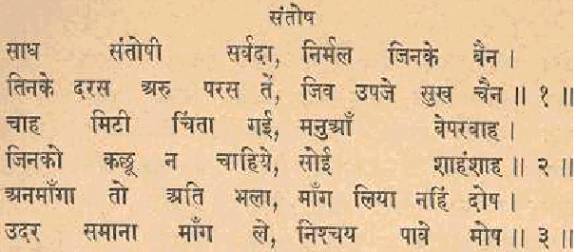 संतोष
साध संतोषी सर्वदा, निर्मल जिनके बैन ।
तिनके दरस अरु परस तें, जिव उपजे सुख चैन ॥ १ ॥
चाह मिटी चिंता गई, मनुआँ बेपरवाह ।
जिनको कछू न चाहिये, सोई शाहंशाह ॥ २ ॥
अनमाँगा तो अति भला, माँग लिया नहिं दोष ।
उदर समाना माँग ले, निश्चय पावे मोष ॥ ३ ॥